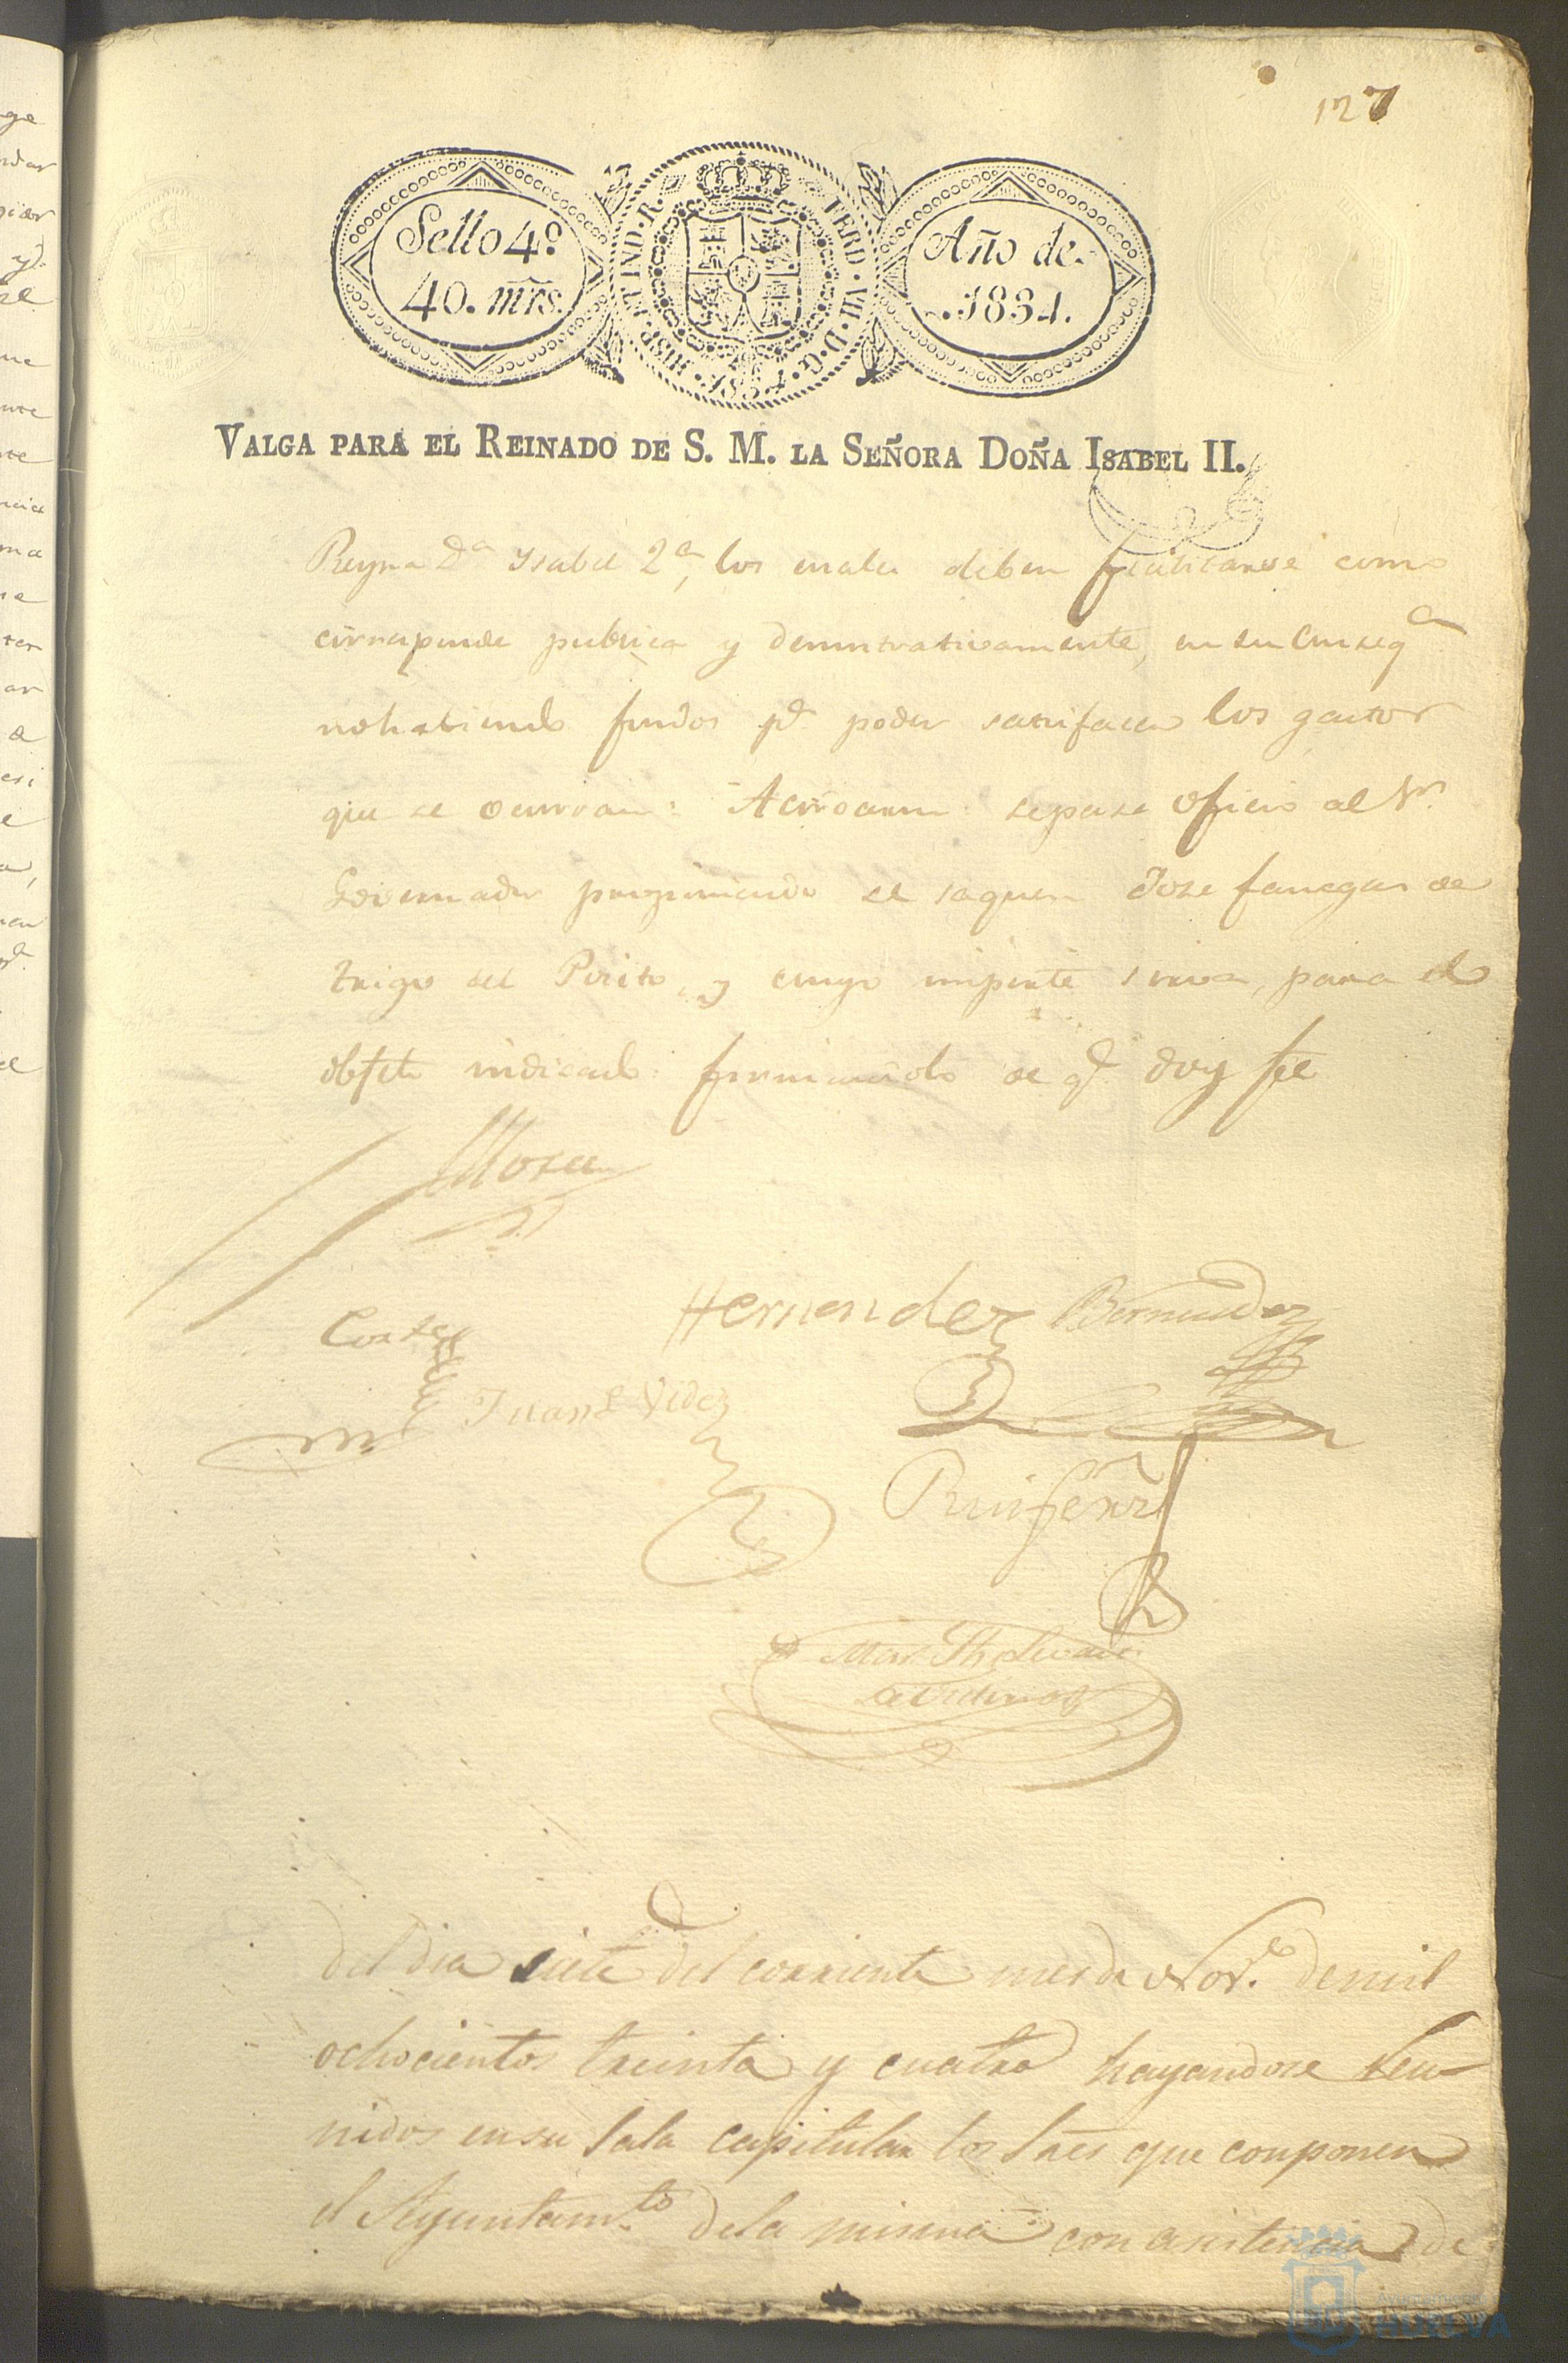 127
Sello 4º
40. mrs.
HISP. ET IND. R.
FERD. VII. D. G.
1834.
Año de
1834.
VALGA PARA EL REINADO DE S. M. LA SEÑORA DOÑA ISABEL II.
Reyna Dª Ysabel 2ª, los cuales deben como
corresponde publica y demostrativamente, en su Consegª
no habiendo fondos pª poder satisfacer los gastos
que se ocurran: Acordaron: se pase oficio al Sr.
Governador proponiendo se saquen dose fanegas de
trigo del Posito, y cuyo importe sirva, para el
objeto indicado: firmandolo de q doy fe
Hernandez Bermudez
Cortes
Juan Videz
Ruifernz
del dia siete del corriente mes de Nove. de mil
ochocientos treinta y cuatro hayandose reu-
nidos en su Sala capitular los Sres que conponen
el Ayuntamto. de la misma con asistencia de
Ayuntamiento
HUELVA